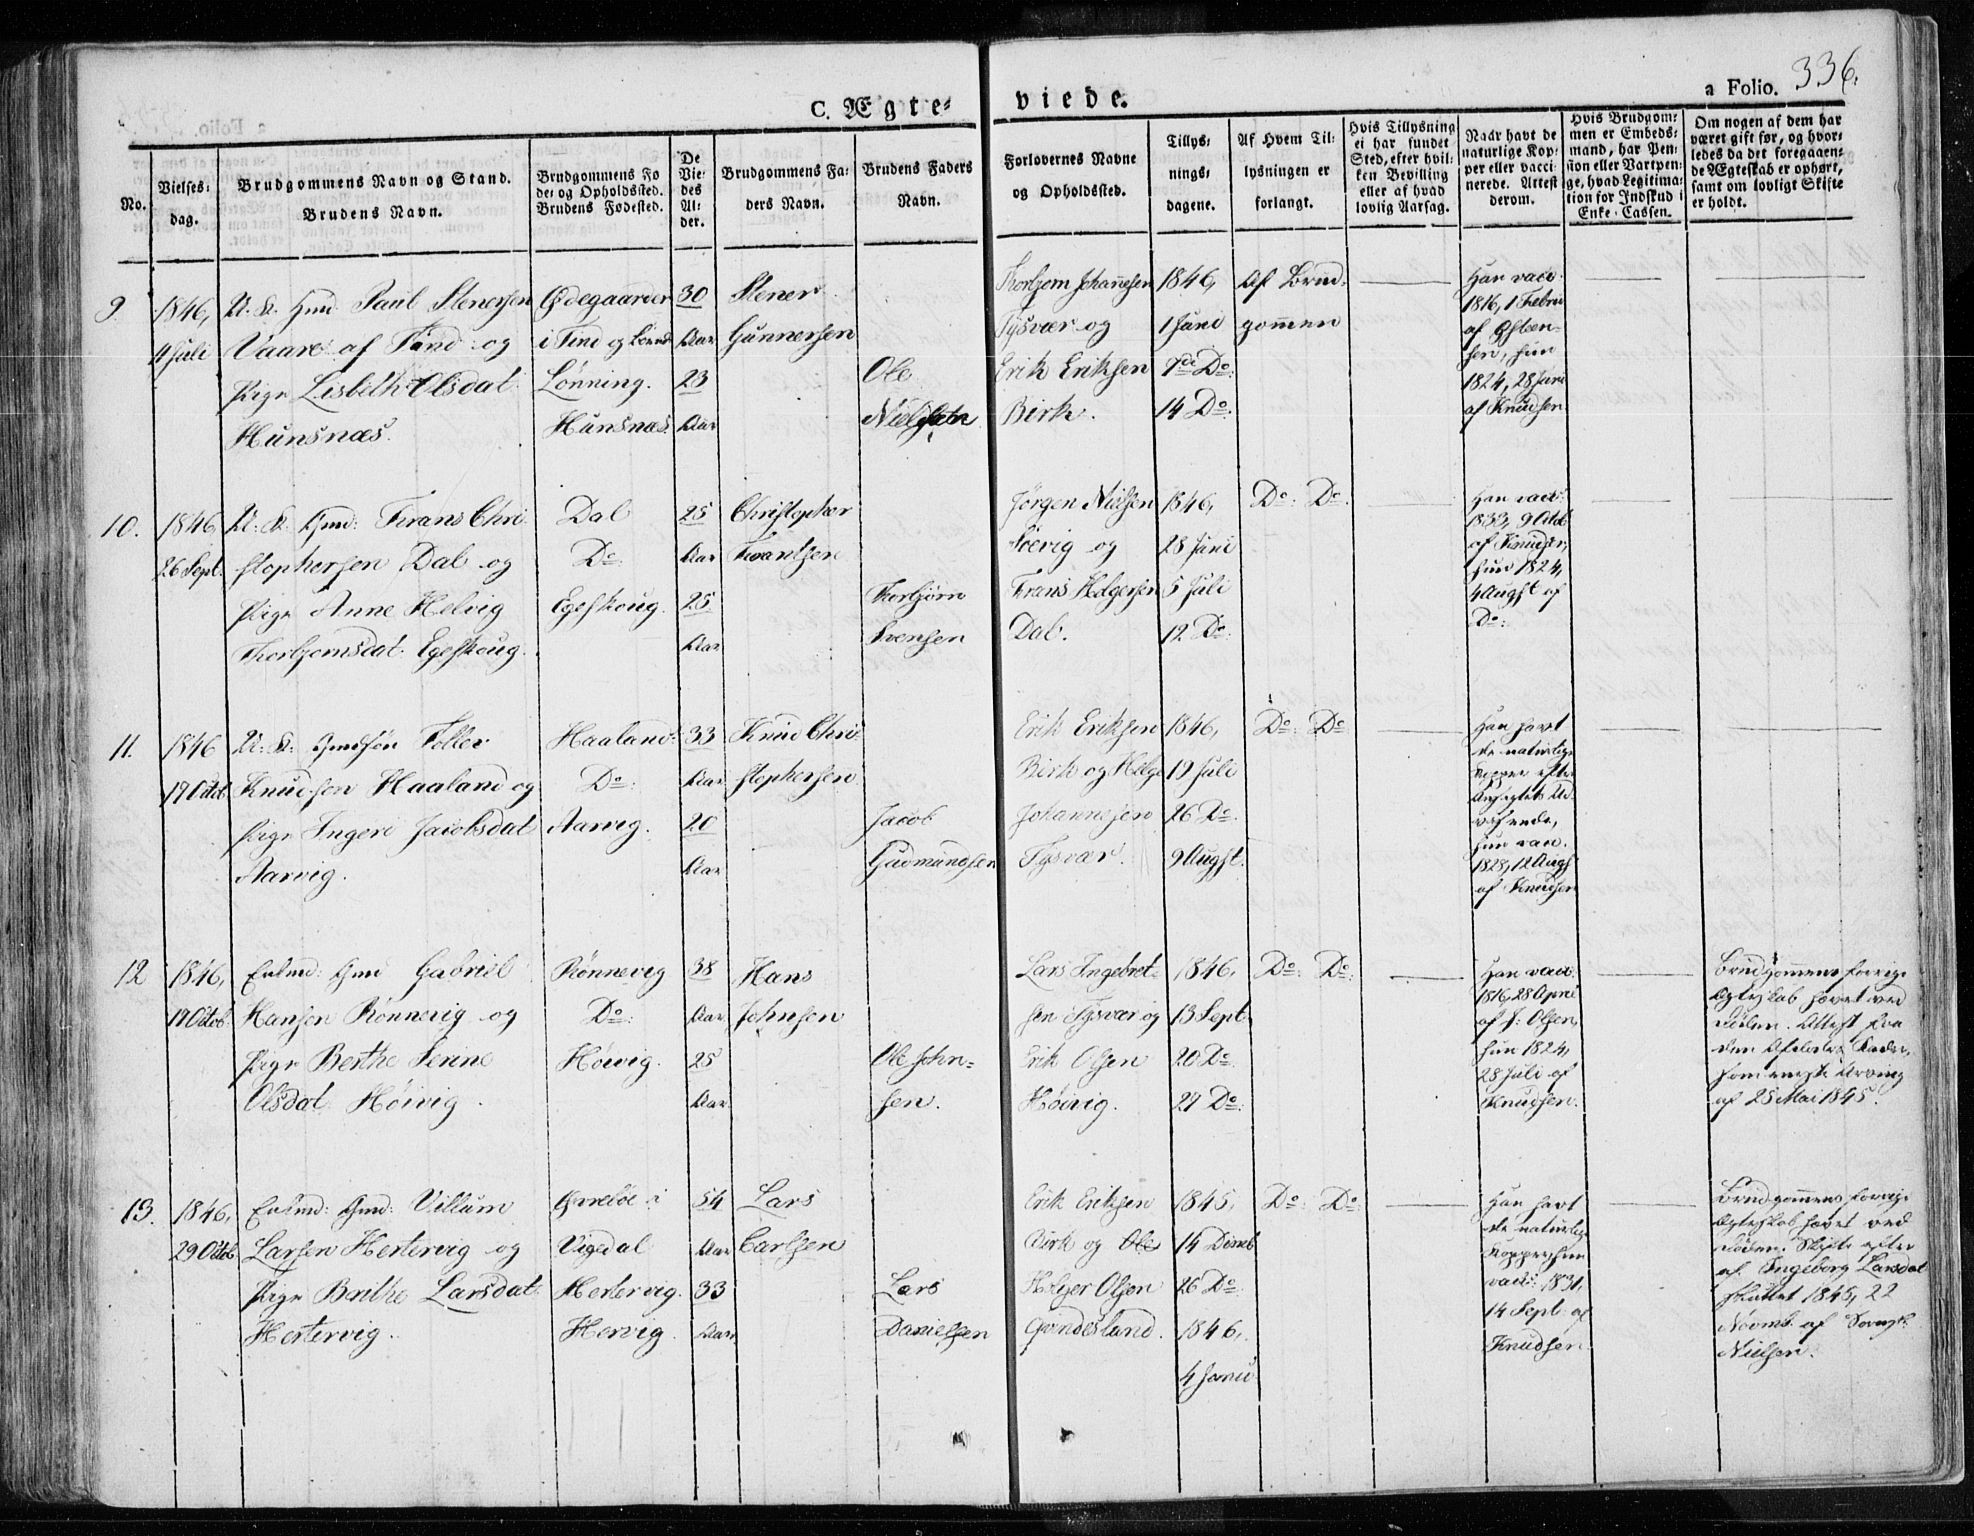 336.
C. Ægte-
viede.
a Folio.
No.
Vielses-
dag.
Brudgommens Navn og Stand.
Brudens Navn.
Brudgommens Fø
de- og Opholdssted.
Brudens Fødested.
De
Vie-
des
Al-
der.
Brudgommens Fa-
ders Navn.
Brudens Faders
Navn.
Forlovernes Navne
og Opholdssted.
Tillys-
nings-
dagene.
Af Hvem Til-
lysningen er
forlangt.
Hvis Tillysning
ei har fundet
Sted, efter hvil-
ken Bevilling
eller af hvad
lovlig Aarsag.
Naar havt de
naturlige Kop-
per eller vacci-
nerede. Attest
derom.
Hvis Brudgom-
men er Embeds-
mand, har Pen-
sion eller Vartpen-
ge, hvad Legitima-
tion for Indskud i
Enke-Cassen.
Om nogen af dem har
været gift før, og hvor-
ledes da det foregaaen-
de Ægteskab er ophørt,
samt om lovligt Skifte
er holdt.
9.
1846,
4 Juli
U. K. Gmd. Paul Stenersen
Vaare af Tind og
Pige Lisbeth Olsdat.
Hunsnæs.
Ødegaarden
i Tind og
Lønning.
Hunsnæs.
30
Aar
23
Aar
Stener
Gunnersen
Ole
Nielsen
Thorbjorn Johannesen
Tysvær og
Erik Eriksen
Birk.
1846,
1 Juni
7de Do
14 Do.
Af Brud-
gommen
Han vacc.
1816, 1 Febru
af Østeen-
sen, hun
1824, 28 Juni
af Knudsen
10.
1846
26 Sept.
U: K: Gmd: Frans Chri-
stophersen Dal og
Pige Anne Helvig
Thorbjomsdat. Egeskoug.
Dal
Do
Egeskoug.
25
Aar
25
Aar
Christopher
Frantsen
Thorbjørn
Svensen
Jørgen Nielsen
Soevig og
Frans Helgersen
Dal.
1846,
28 Juni
5 Juli
12 Do:
Do: Do:
Han vacc:
1833, 9 Octob
af Knudsen,
hun 1824,
4 Augst af
Do:
11.
1846
17 Octob
U: K: Gmdsøn Toller
Knudsen Haaland og
Pige Ingeri Jacobsdat
Aarvig.
Haaland.
Do:
Aarvig.
33
Aar
20
Aar
Knud Chri-
stophersen
Jacob
Gudmundsen
Erik Eriksen
Birk og Helge
Johannesen
Tysvær.
1846,
19 Juli
26 Do.
9 Augst.
Do: Do
Han havt
de naturlige
Kopper efter
Ansigtets Ud-
visende,
hun vac.
1828, 12 Augst
af Knudsen
12
1846,
17 Octob
Enkmd: Gmd Gabriel
Hansen Rønnevig og
Pige Berthe Serine
Olsdat. Høivig.
Rønnevig
Do:
Høivig.
38
Aar
25
Aar
Hans
Johnsen
Ole John-
sen.
Lars Ingebret-
sen Tysvær og
Erik Olsen
Høivig.
1846,
13 Sept.
20 Do
27 Do:
Do: Do:
Han vacc.
1816, 28 April
af J: Olsen,
hun 1824,
28 Juli af
Knudsen.
Brudgommens forrige
Ægteskab hævet ved
Døden. Attest fra
den Afdødes Fader,
som eneste Arving
af 25 Mai 1845.
13.
1846,
29 Octob
Enkmd: Gmd: Villum
Larsen Hertervig og
Pige Berthe Larsdat.
Hertervig.
i
Vigedal
Hertervig.
Hervig.
54
Aar
33
Aar
Lars
Carlsen
Lars
Danielsen
Erik Eriksen
Birk og Ole
Holger Olsen
Grindesland.
1845,
14 Decmb
26 Do
1846,
4 Janu
Do: Do:
Han havt
de naturlige
Kopper, hun
vacc. 1831,
14 Sept. af
Knudsen
Brudgommens forrige
Ægteskab hævet ved
Døden. Skifte efter
af. Ingeborg Larsdat
sluttet 1845, 22
Novmb. af Sorenskr.
Nielsen.